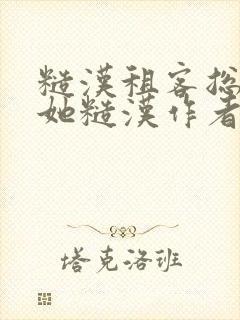 糙漢租客总
她糙漢作者
塔克洛班